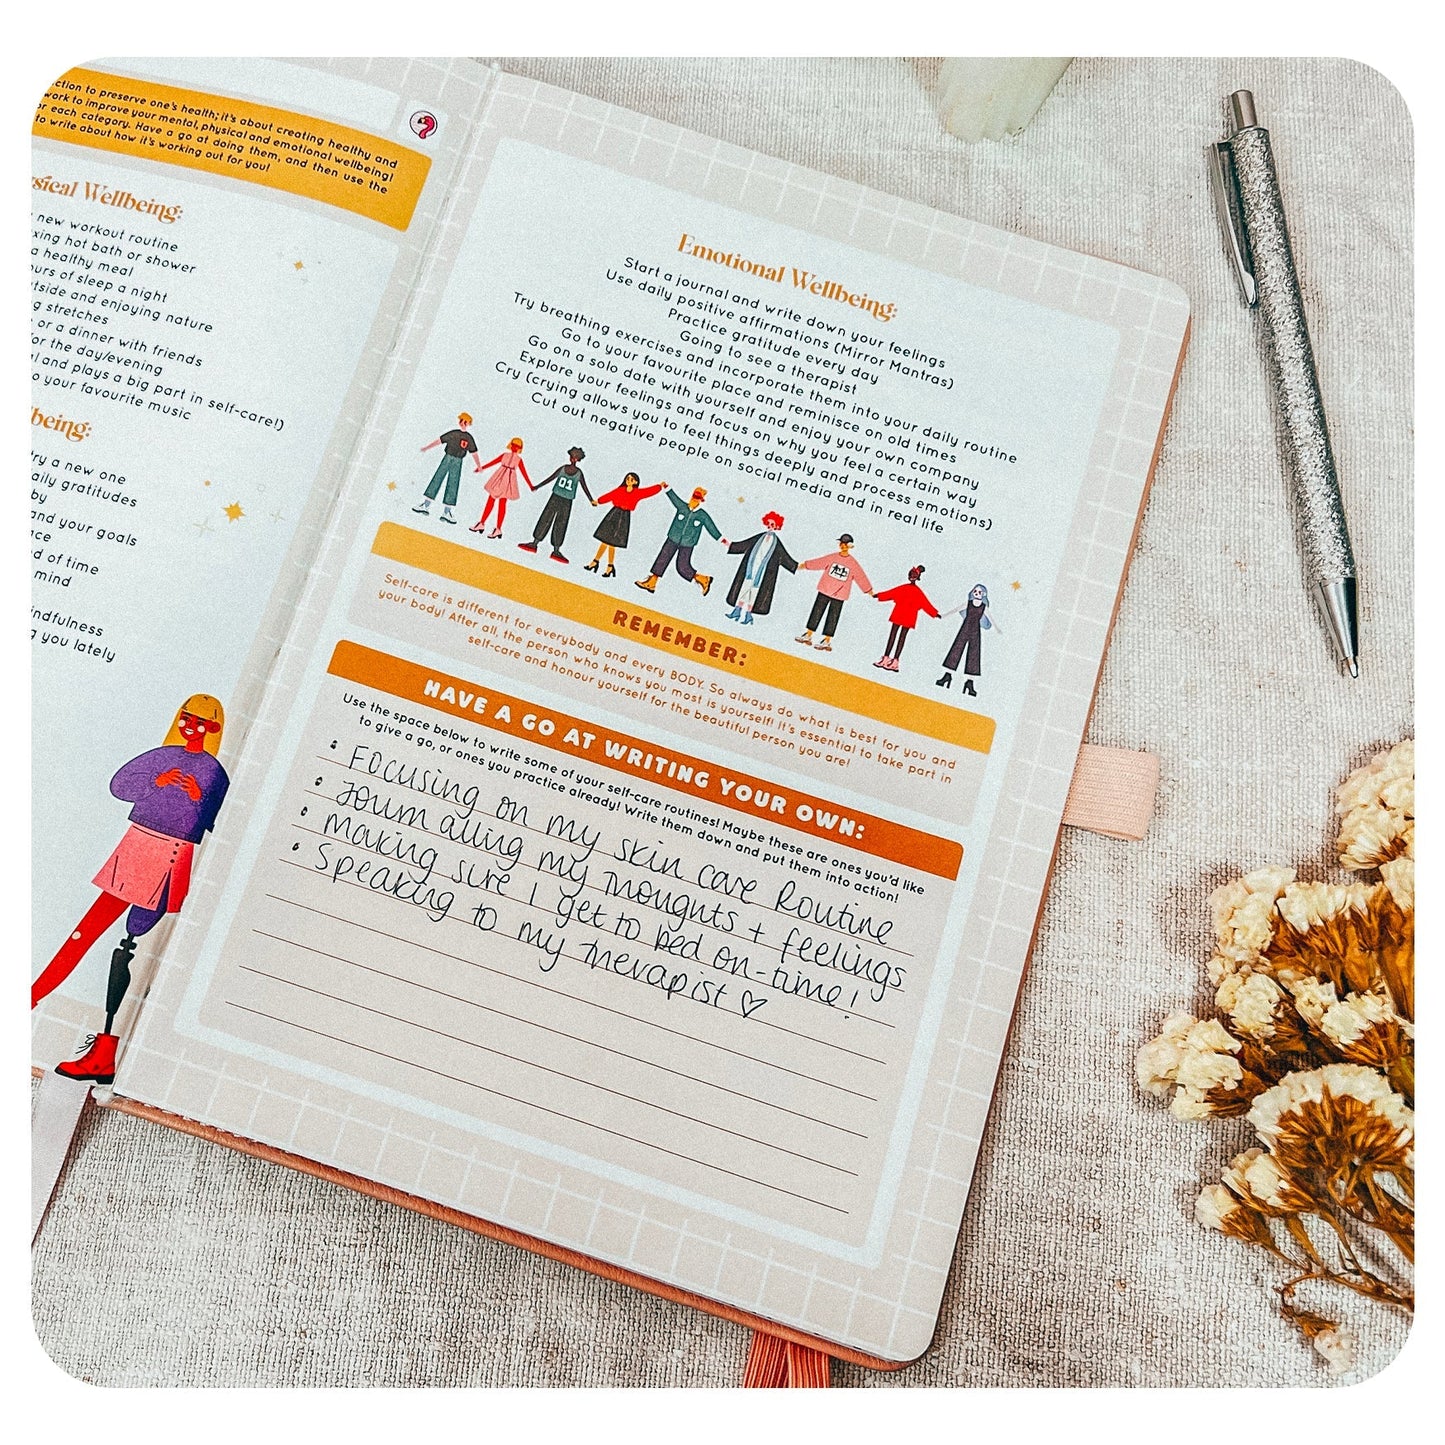 ction to preserve one's health; it's about creating healthy and
work to improve your mental, physical and emotional wellbeing!
or each category. Have a go at doing them, and then use the
to write about how it's working out for you!
sical Wellbeing:
new workout routine
xing hot bath or shower
a healthy meal
ours of sleep a night
tside and enjoying nature
g stretches
or a dinner with friends
for the day/evening
l and plays a big part in self-care!)
o your favourite music
lbeing:
try a new one
aily gratitudes
by
and your goals
ace
d of time
mind
indfulness
g you lately
Emotional Wellbeing:
Start a journal and write down your feelings
Use daily positive affirmations (Mirror Mantras)
Practice gratitude every day
Going to see a therapist
Try breathing exercises and incorporate them into your daily routine
Go to your favourite place and reminisce on old times
Go on a solo date with yourself and enjoy your own company
Explore your feelings and focus on why you feel a certain way
Cry (crying allows you to feel things deeply and process emotions)
Cut out negative people on social media and in real life
01
REMEMBER:
Self-care is different for everybody and every BODY. So always do what is best for you and
your body! After all, the person who knows you most is yourself! It's essential to take part in
self-care and honour yourself for the beautiful person you are!
HAVE A GO AT WRITING YOUR OWN:
Use the space below to write some of your self-care routines! Maybe these are ones you'd like
to give a go, or ones you practice already! Write them down and put them into action!
• Focusing on my skin care Routine
• Journalling my thoughts + feelings
• making sure I get to bed on-time!
• Speaking to my therapist ♡